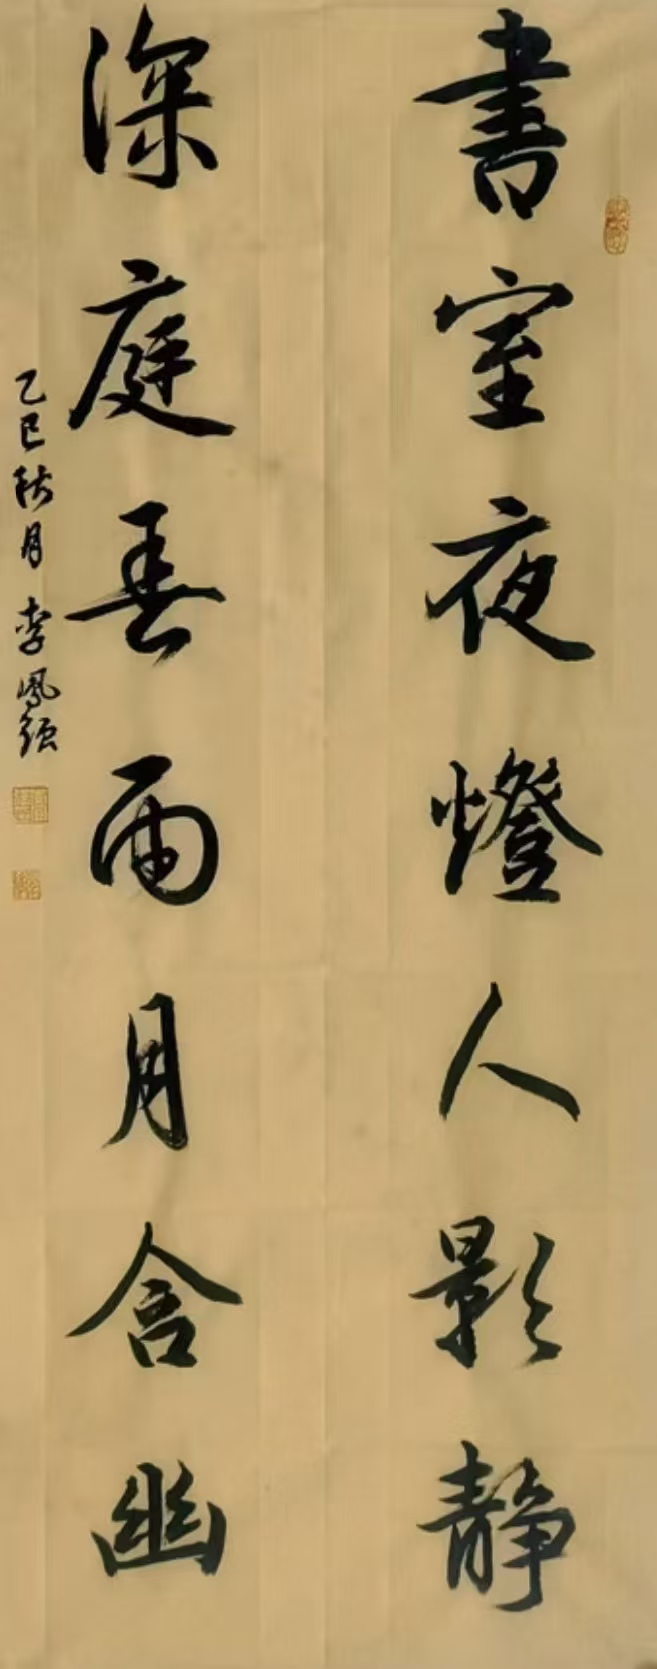 書室夜燈人影静
深庭春雨月含幽
乙巳秋月 李鳳強